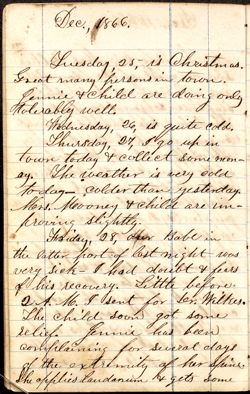 Dec, 1866.
Tuesday, 25, is Christmas.
Great many persons in town.
Jennie & Child are doing only
tolerably well.
Wednesday, 26, is quite cold.
Thursday, 27, I go up in
town today & collect some mon-
ey. The weather is very cold
to day— colder than yesterday.
Mrs. Mooney & child are im-
proving slightly.
Friday, 28, Our Babe in
the latter part of last night was
very sick— I had doubt & fears
of his recovery. Little before
2 A. M. I sent for Dr. Wilkes.
The child soon got some
relief. Jennie has been
complaining for several days
of the extremity of her spine.
She applies laudanum & gets some